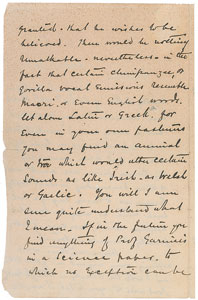 granted - that he wishes to be
believed. There would be nothing
remarkable - nevertheless - in the
fact that certain chimpanzee, or
Gorilla vocal emissions resemble
Maori, or even English words.
let alone Latin or Greek, for
Even in your own pastures
you may find an animal
or two which would utter certain
sounds as like Irish, as Welsh
or Gaelic. You will I am
sure quite understand what
I mean. If in the future you
find anything of Prof Garner's
in a Science paper, to
which no exception can be